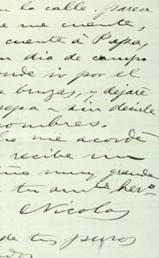 en la calle. parece
me cuente,
cuente á Papá,
un dia de campo
donde ir por el
brujas, y dejaré
sepa sin decirle
nombres.
me acordé
recibe un
muy grande
tu amte hero
Nicolas
de tus puros